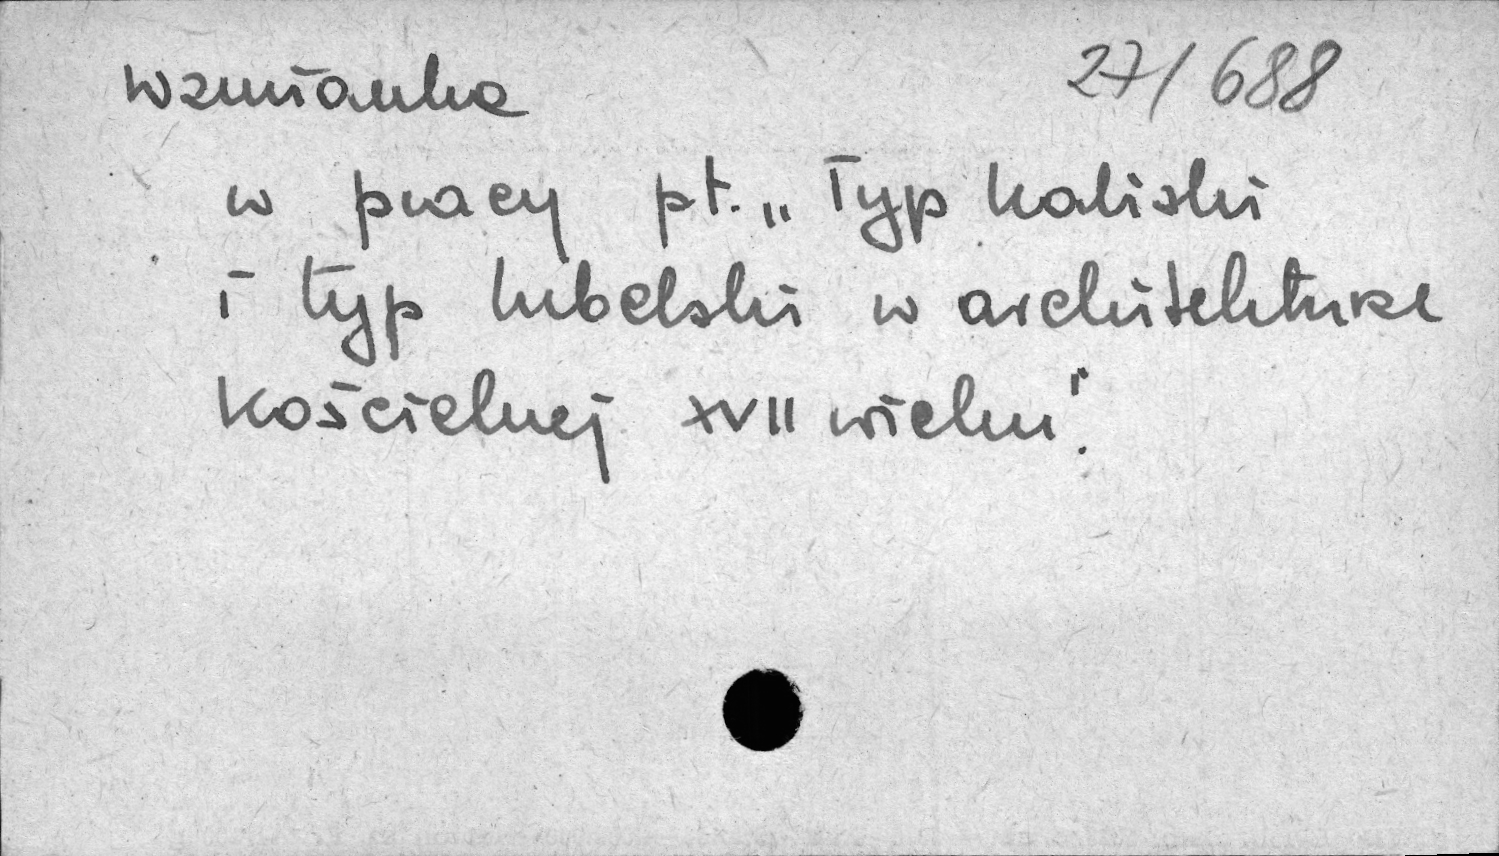 27/688
Wzmianka
w pracy pt. „Typ kaliski
i typ lubelski w architekturze
kościelnej XVII wieku”.